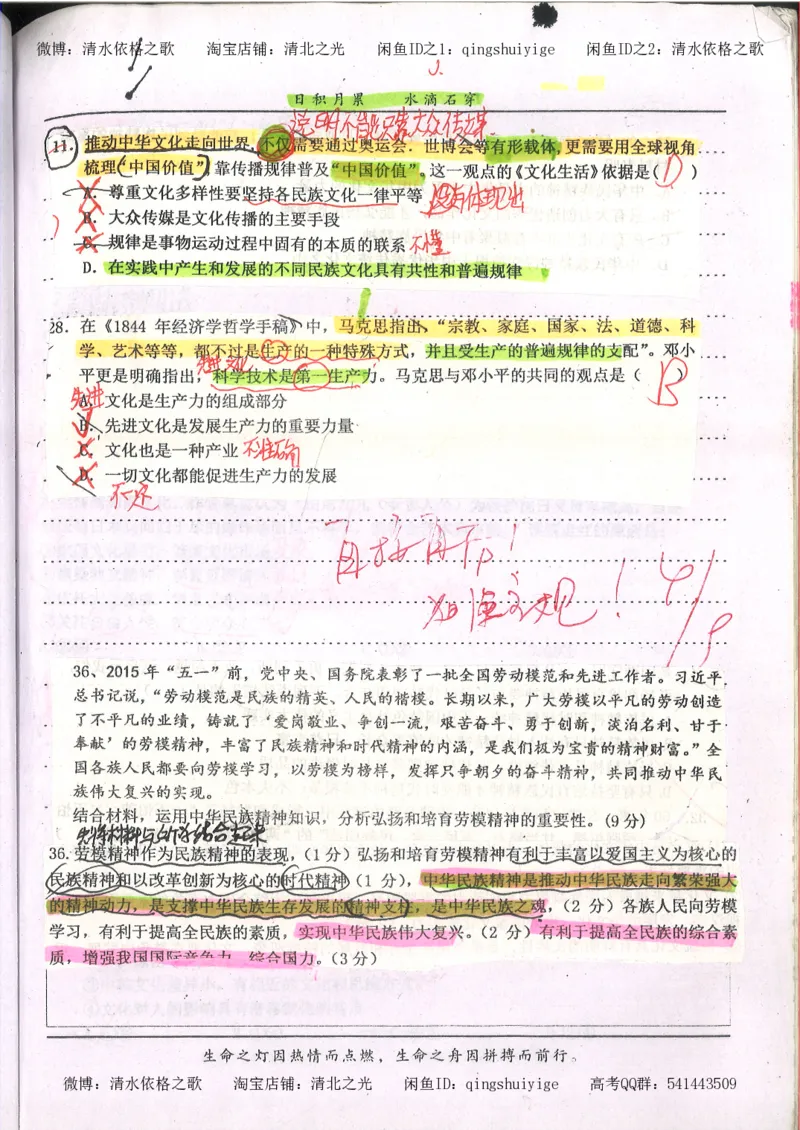 微博：清水依格之歌 淘宝店铺：清北之光 闲鱼ID之1：qingshuiyige 闲鱼ID之2：清水依格之歌
日积月累 水滴石穿
说明不能只靠大众传媒
11. 推动中华文化走向世界，不仅需要通过奥运会、世博会等有形载体，更需要用全球视角
梳理“中国价值”，靠传播规律普及“中国价值”。这一观点的《文化生活》依据是( D )
A．尊重文化多样性要坚持各民族文化一律平等 没有体现出
B．大众传媒是文化传播的主要手段
C．规律是事物运动过程中固有的本质的联系 不懂
D．在实践中产生和发展的不同民族文化具有共性和普遍规律
28．在《1844 年经济学哲学手稿》中，马克思指出，“宗教、家庭、国家、法、道德、科
学、艺术等等，都不过是生产的一种特殊方式，并且受生产的普遍规律的支配”。邓小
先进文化
平更是明确指出，科学技术是第一生产力。马克思与邓小平的共同的观点是（ B ）
先进
A．文化是生产力的组成部分
B．先进文化是发展生产力的重要力量
C．文化也是一种产业 不准确
D．一切文化都能促进生产力的发展
36、2015年“五一”前，党中央、国务院表彰了一批全国劳动模范和先进工作者。习近平
总书记说，“劳动模范是民族的精英、人民的楷模。长期以来，广大劳模以平凡的劳动创造
了不平凡的业绩，铸就了‘爱岗敬业、争创一流，艰苦奋斗、勇于创新，淡泊名利、甘于
奉献’的劳模精神，丰富了民族精神和时代精神的内涵，是我们极为宝贵的精神财富。”全
国各族人民都要向劳模学习，以劳模为榜样，发挥只争朝夕的奋斗精神，共同推动中华民
族伟大复兴的实现。
结合材料，运用中华民族精神知识，分析弘扬和培育劳模精神的重要性。(9分)
先将材料与所学结合起来
36.劳模精神作为民族精神的表现，（1分）弘扬和培育劳模精神有利于丰富以爱国主义为核心的
民族精神和以改革创新为核心的时代精神（1 分），中华民族精神是推动中华民族走向繁荣强大
的精神动力，是支撑中华民族生存发展的精神支柱，是中华民族之魂，（2 分）各族人民向劳模
学习，有利于提高全民族的素质，实现中华民族伟大复兴。（2 分）有利于提高全民族的综合素
质，增强我国国际竞争力、综合国力。（3分）
生命之灯因热情而点燃，生命之舟因拼搏而前行。
微博：清水依格之歌 淘宝店铺：清北之光 闲鱼ID：qingshuiyige 高考QQ群：541443509